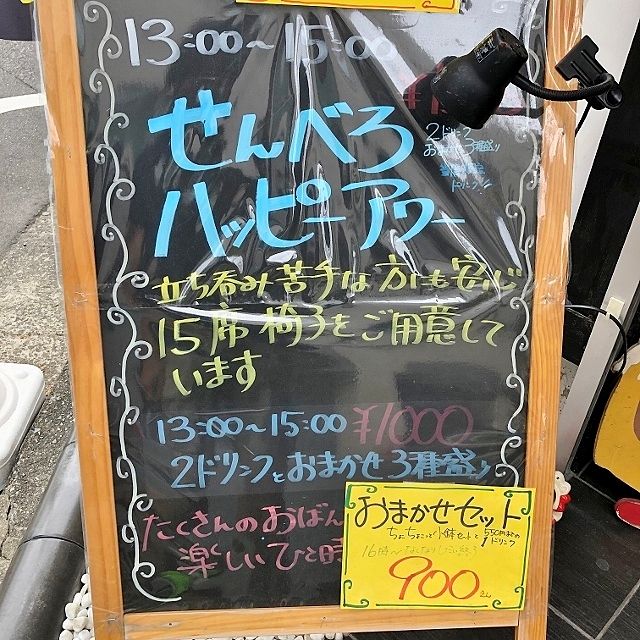 13:00〜15:00
2ドリンク
おまかせ3種盛り
せんべろ
ハッピーアワー
立ち呑み苦手な方にも安心
15席椅子をご用意して
います
13:00〜15:00 ¥1000
2ドリンクとおまかせ3種盛り
たくさんのおばん
楽しいひと時
おまかせセット
ちょこちょこっと小鉢セットと
1ドリンク
16時〜なくなり次第終了
900